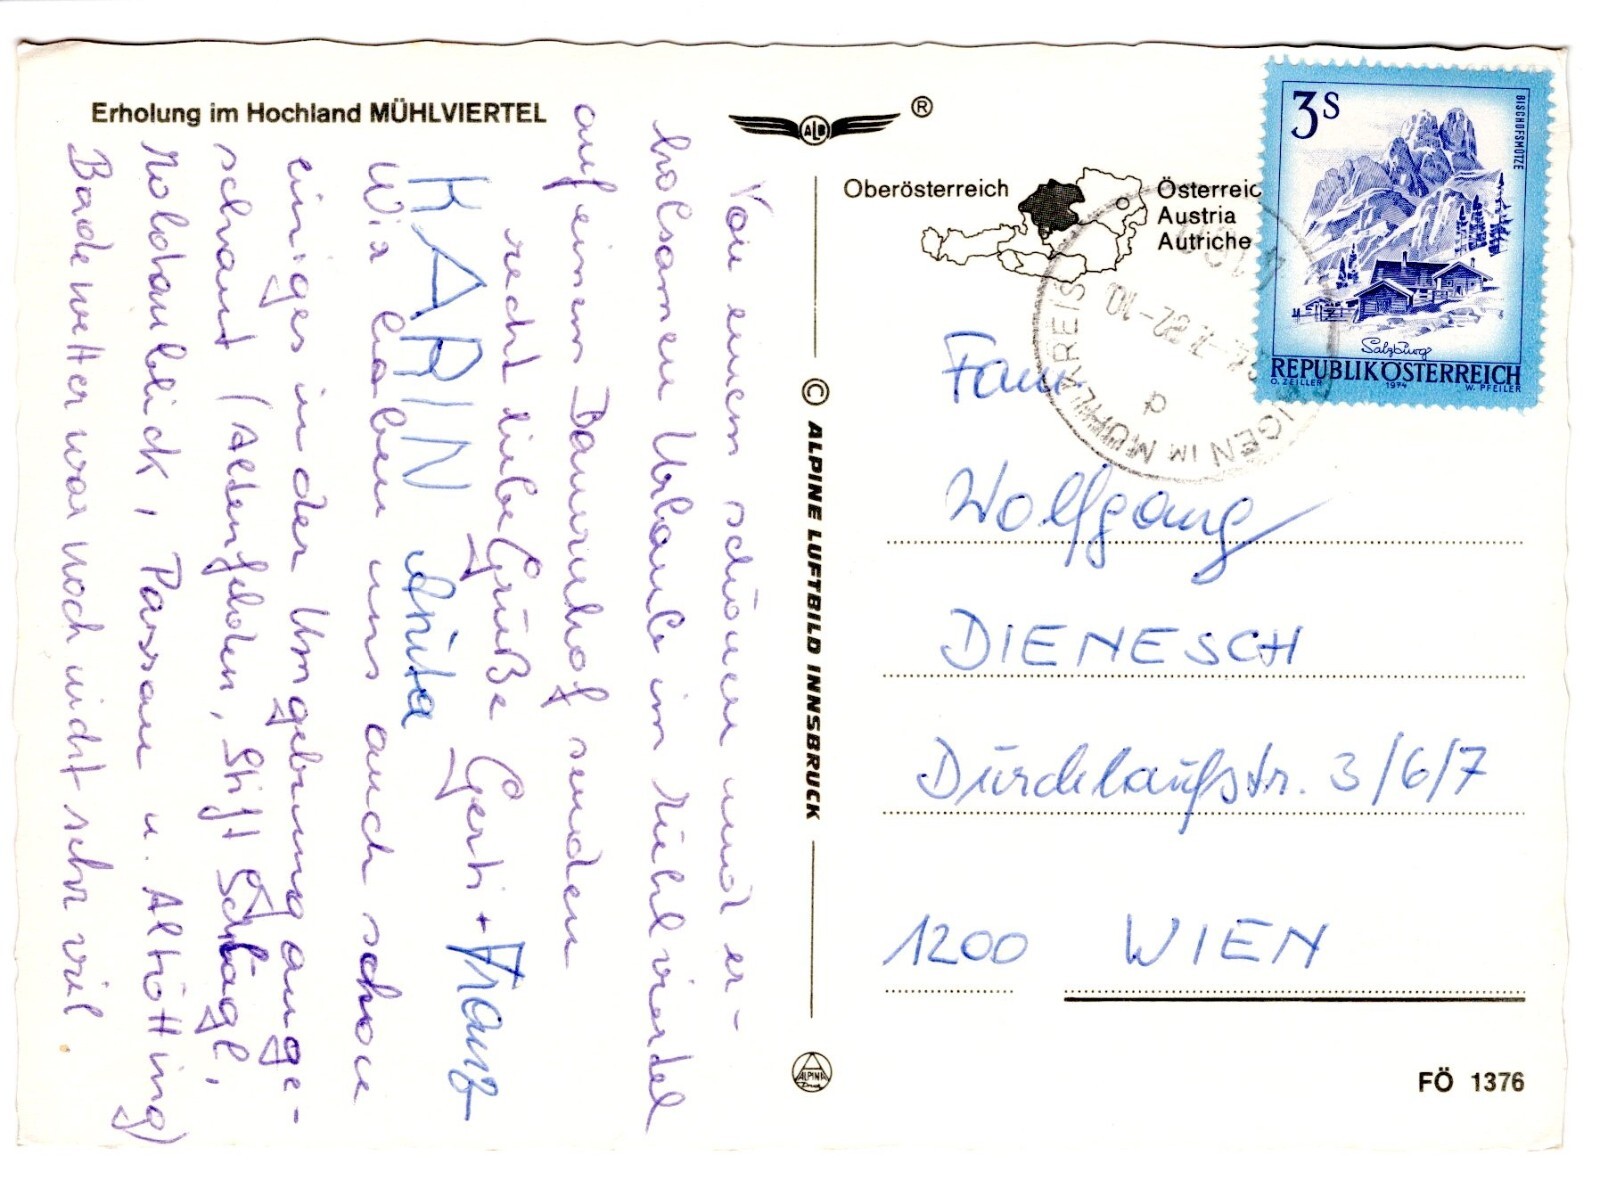 Erholung im Hochland MÜHLVIERTEL
Von einem schönen und er-
holsamen Urlaub im Mühlviertel
auf einem Bauernhof senden
recht liebe Grüße Gerti + Franz
KARIN Anita
Wir haben uns auch schon
einiges in der Umgebung ange-
schaut (Altenfelden, Stift Schlägl,
Moldaublick, Passau u. Altötting)
Badewetter war noch nicht sehr viel.
ALB ®
Oberösterreich
Österreic
Austria
Autriche
© ALPINE LUFTBILD INNSBRUCK
ALPINA
Druck
3S
BISCHOFSMÜTZE
Salzburg
REPUBLIK ÖSTERREICH
O. ZEILLER 1974 W. PFEILER
IGEN IM MÜHLKREIS
4 -7. 82 -10
a
Fam.
Wolfgang
DIENESCH
Durchlaufstr. 3/6/7
1200 WIEN
FÖ 1376